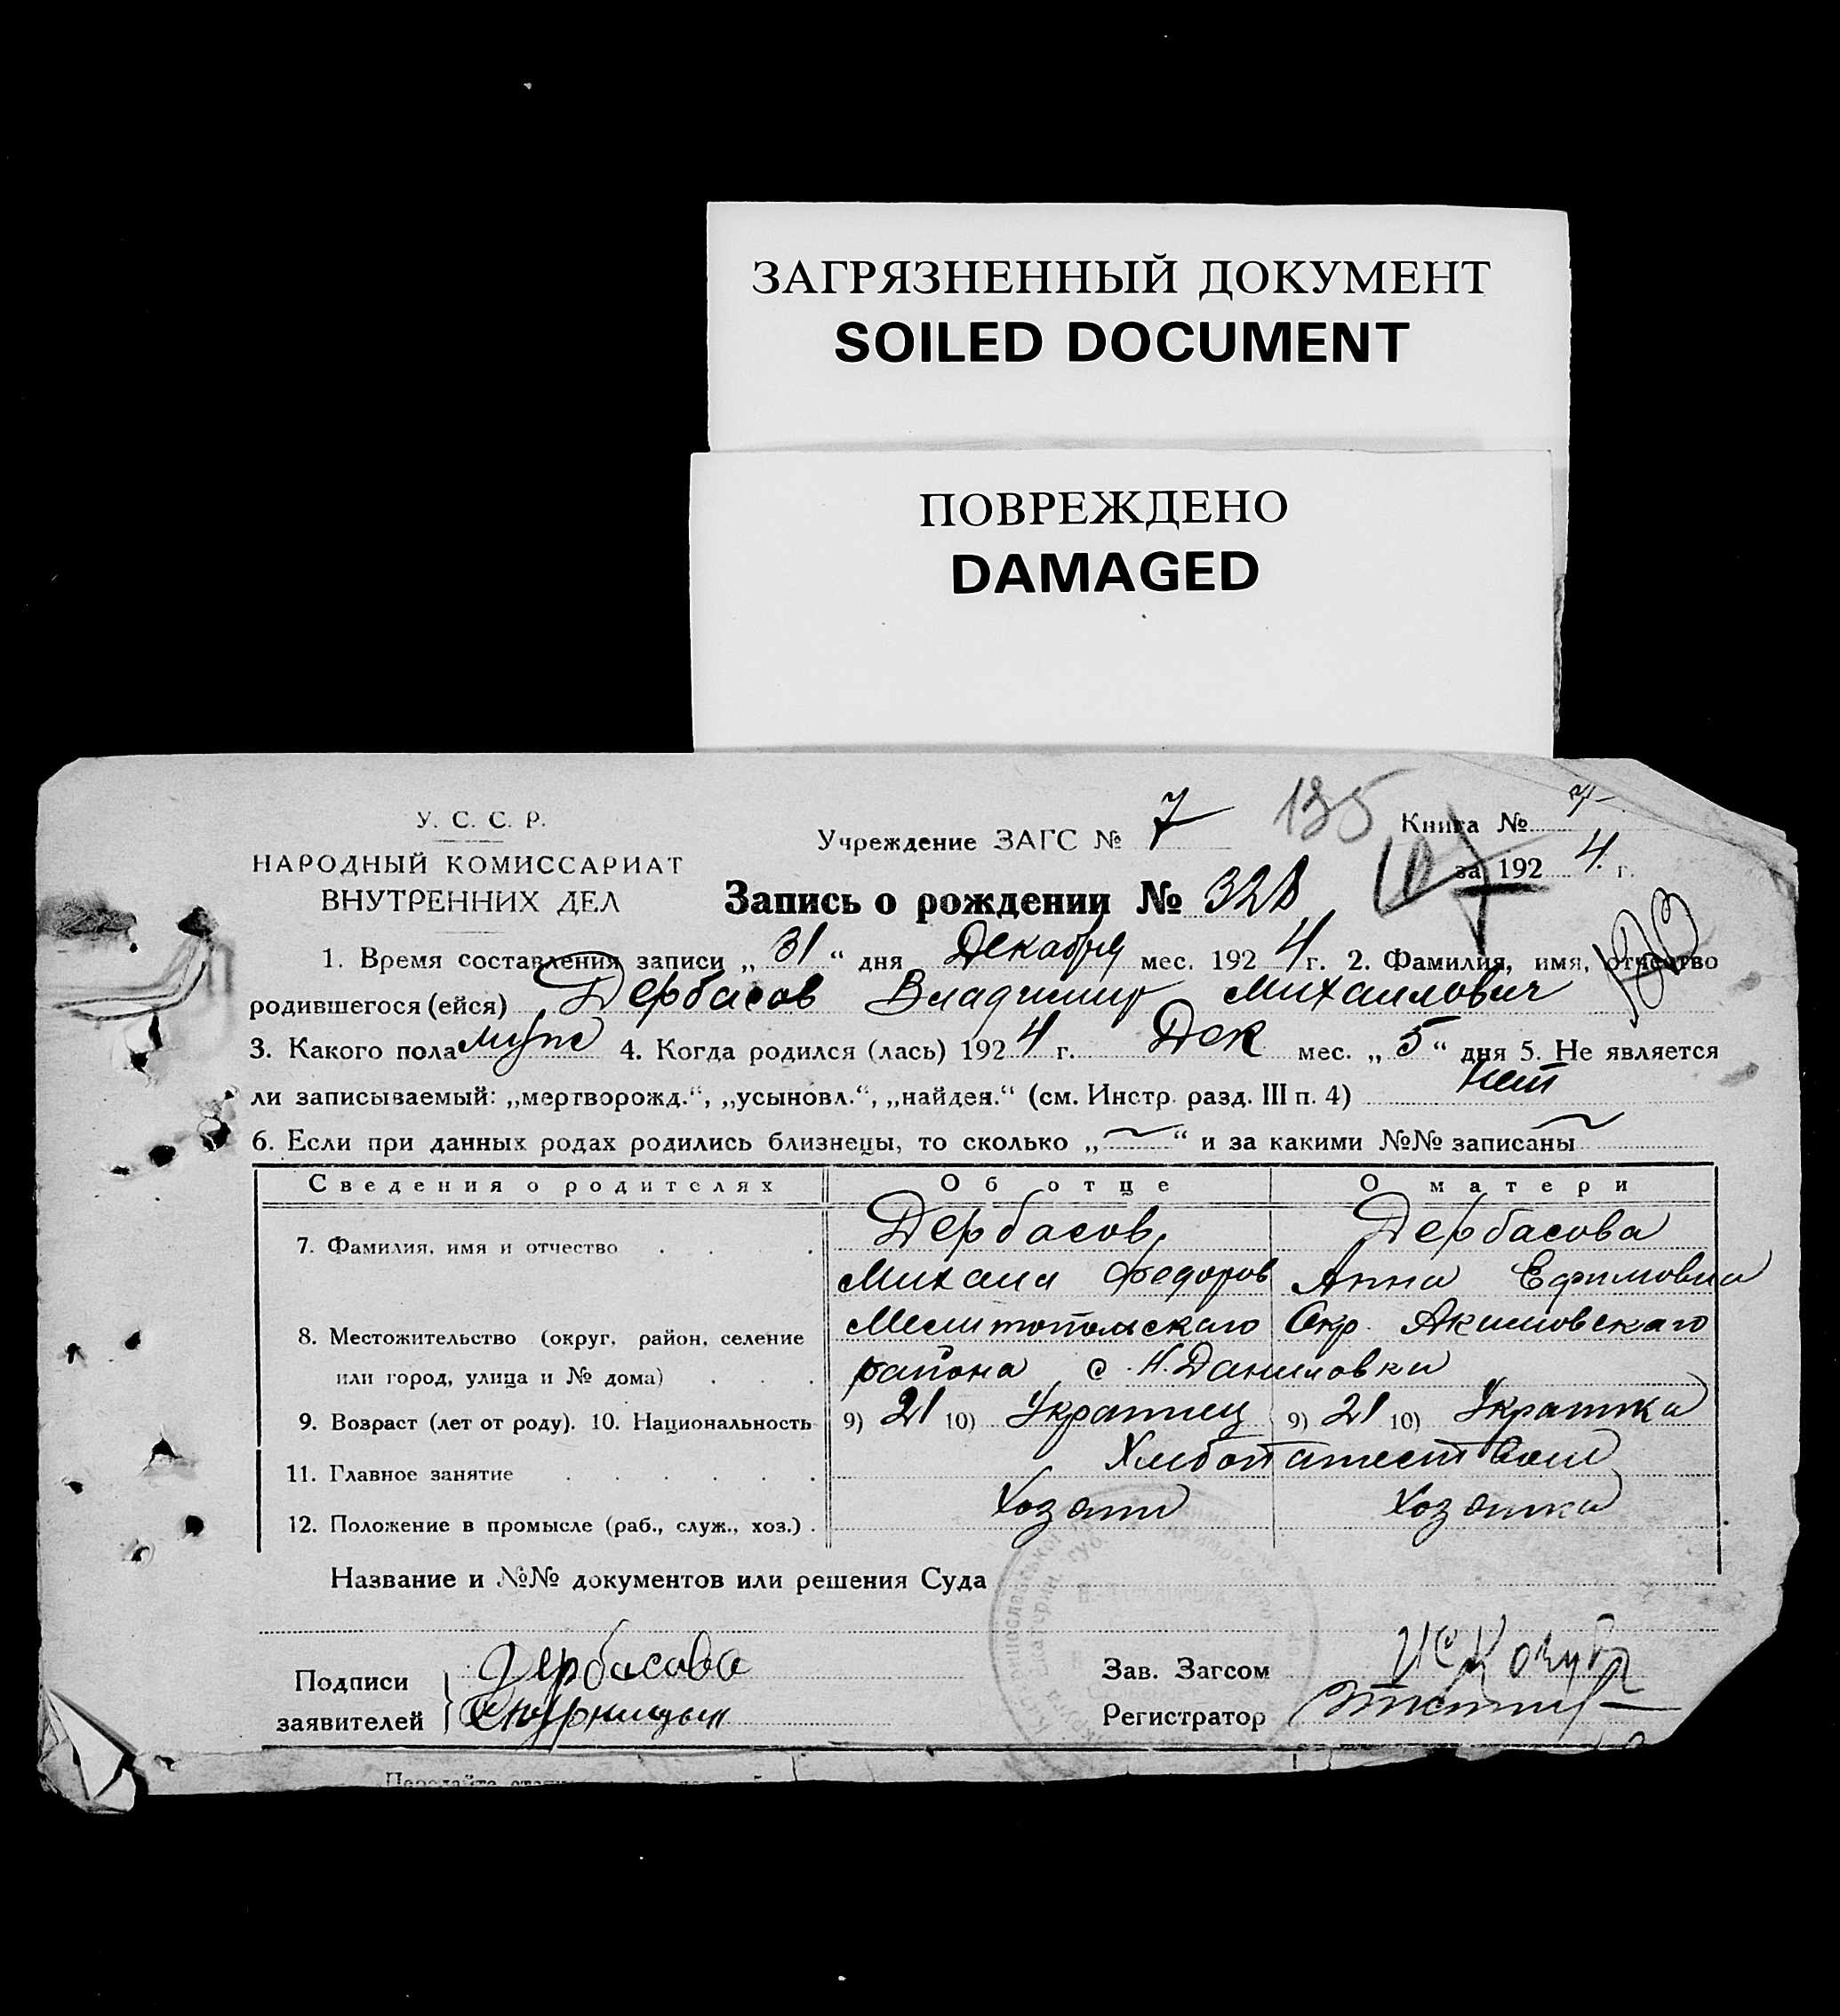 ЗАГРЯЗНЕННЫЙ ДОКУМЕНТ
SOILED DOCUMENT
ПОВРЕЖДЕНО
DAMAGED
У. С. С. Р.
НАРОДНЫЙ КОМИССАРИАТ
ВНУТРЕННИХ ДЕЛ
Учреждение ЗАГС № 7
135
Книга № 7
за 1924 г.
107
Запись о рождении № 328
1. Время составления записи „31“ дня Декабря мес. 1924 г. 2. Фамилия, имя, отчество
родившегося (ейся) Дербасов Владимир Михаилович
3. Какого пола муж 4. Когда родился (лась) 1924 г. Дек мес. „5“ дня 5. Не является
ли записываемый: „мертворожд.“, „усыновл.“, „найден.“ (см. Инстр. разд. III п. 4) нет
6. Если при данных родах родились близнецы, то сколько „~“ и за какими №№ записаны ~
Сведения о родителях Об отце О матери
7. Фамилия, имя и отчество Дербасов Дербасова
Михаил Федоров Анна Ефимовна
8. Местожительство (округ, район, селение Мелитопольскаго Окр. Акимовскаго
или город, улица и № дома) района с. Н. Даниловки
9. Возраст (лет от роду). 10. Национальность 9) 21 10) Украинец 9) 21 10) Украинка
11. Главное занятие Хлебопашеством
12. Положение в промысле (раб., служ., хоз.) Хозяин Хозяйка
Название и №№ документов или решения Суда
Подписи Дербасова
заявителей
Зав. Загсом
Регистратор